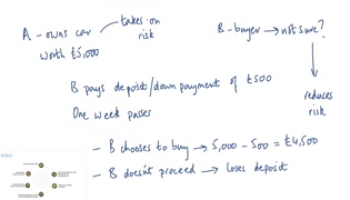 A - owns car
worth £5,000
takes on
risk
B - buyer → not sure?
reduces
risk
B pays deposit/down payment of £500
One week passes
- B chooses to buy → 5,000 - 500 = £4,500
- B doesn't proceed → loses deposit